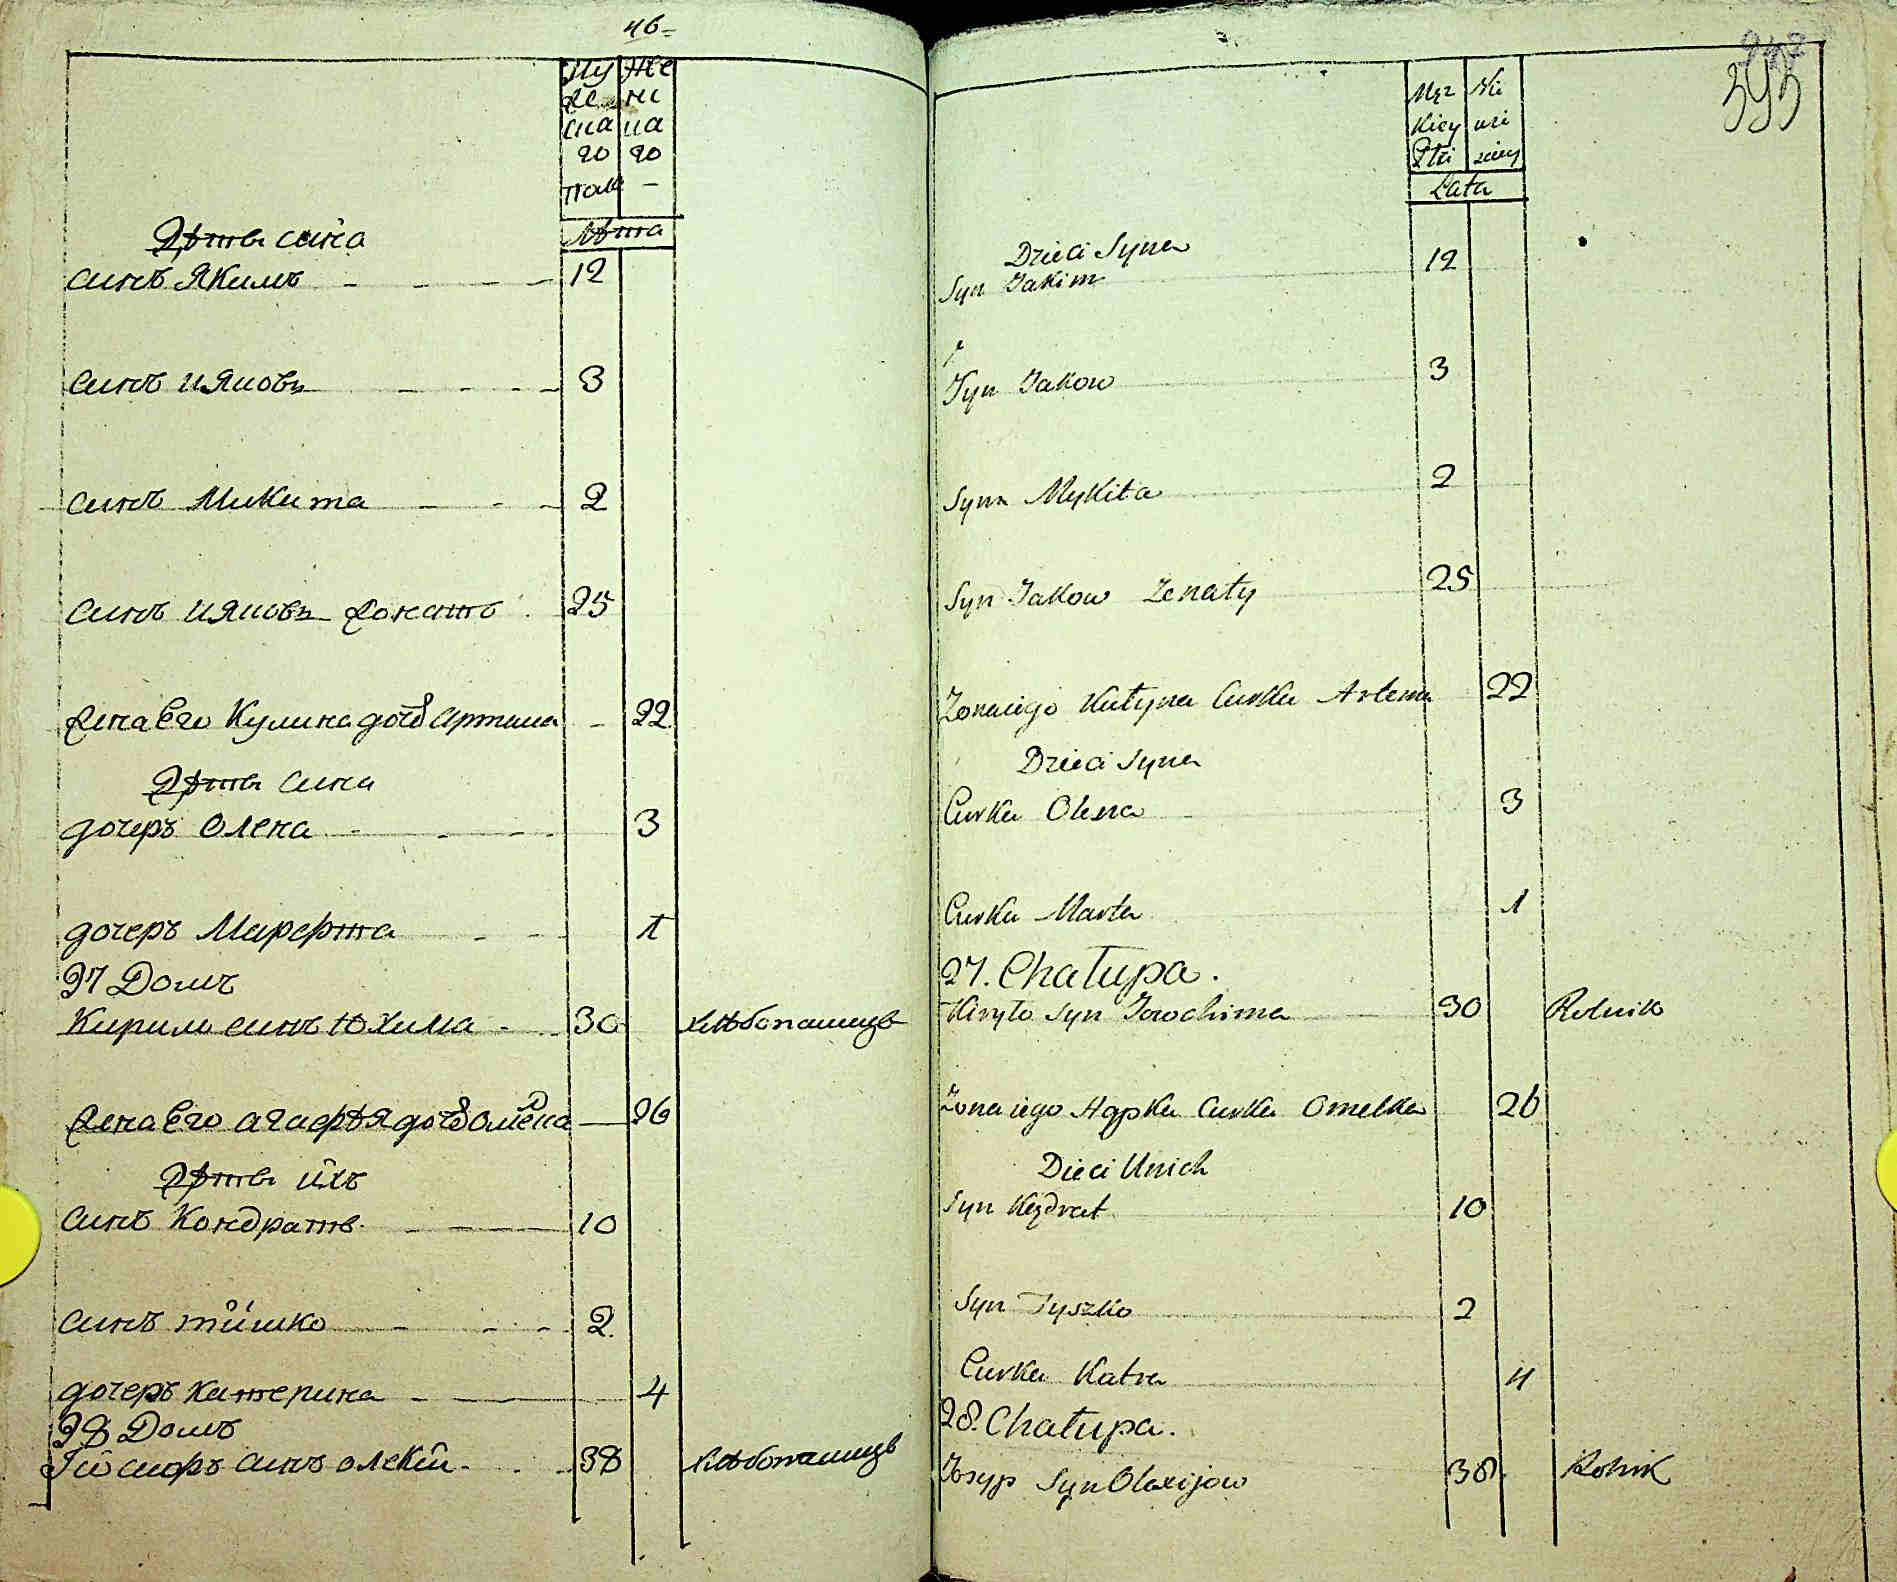 46
Му Же
же ни
ска на
го го
пола –
Лѣта
Дѣти сина
синъ Якимъ 12
синъ ияковъ 3
синъ Микита 2
синъ ияковъ жонатъ 25
жена Его Кулина дочъ Артема 22
Дѣти сина
дочеръ Олена 3
дочеръ Марфта 1
27 Домъ
Кирило синъ Юхима 30 хлѣбопашецъ
жена Его агафѣя дочъ Омелка 26
Дѣти ихъ
синъ Кондратъ 10
синъ тишко 2
дочеръ катерина 4
28 Домъ
Гиосифъ синъ олекси 38 хлѣбопашецъ
247
395
Męz Nie
Kiey wie
Płci sciey
Lata
Dzieci Syna
Syn Jakim 12
Syn Jakow 3
Syn Mykita 2
Syn Jakow Zenaty 25
Zona iego Kułyna Curka Artema 22
Dzieci Syna
Curka Olena 3
Curka Marta 1
27. Chałupa.
Kiryło Syn Jowchima 30 Rolnik
Zona iego Hapka Curka Omelka 26
Dieci Unich
Syn Kądrat 10
Syn Tyszko 2
Curka Katra 4
28. Chałupa.
Jozyp Syn Olexijow 38. Rolnik